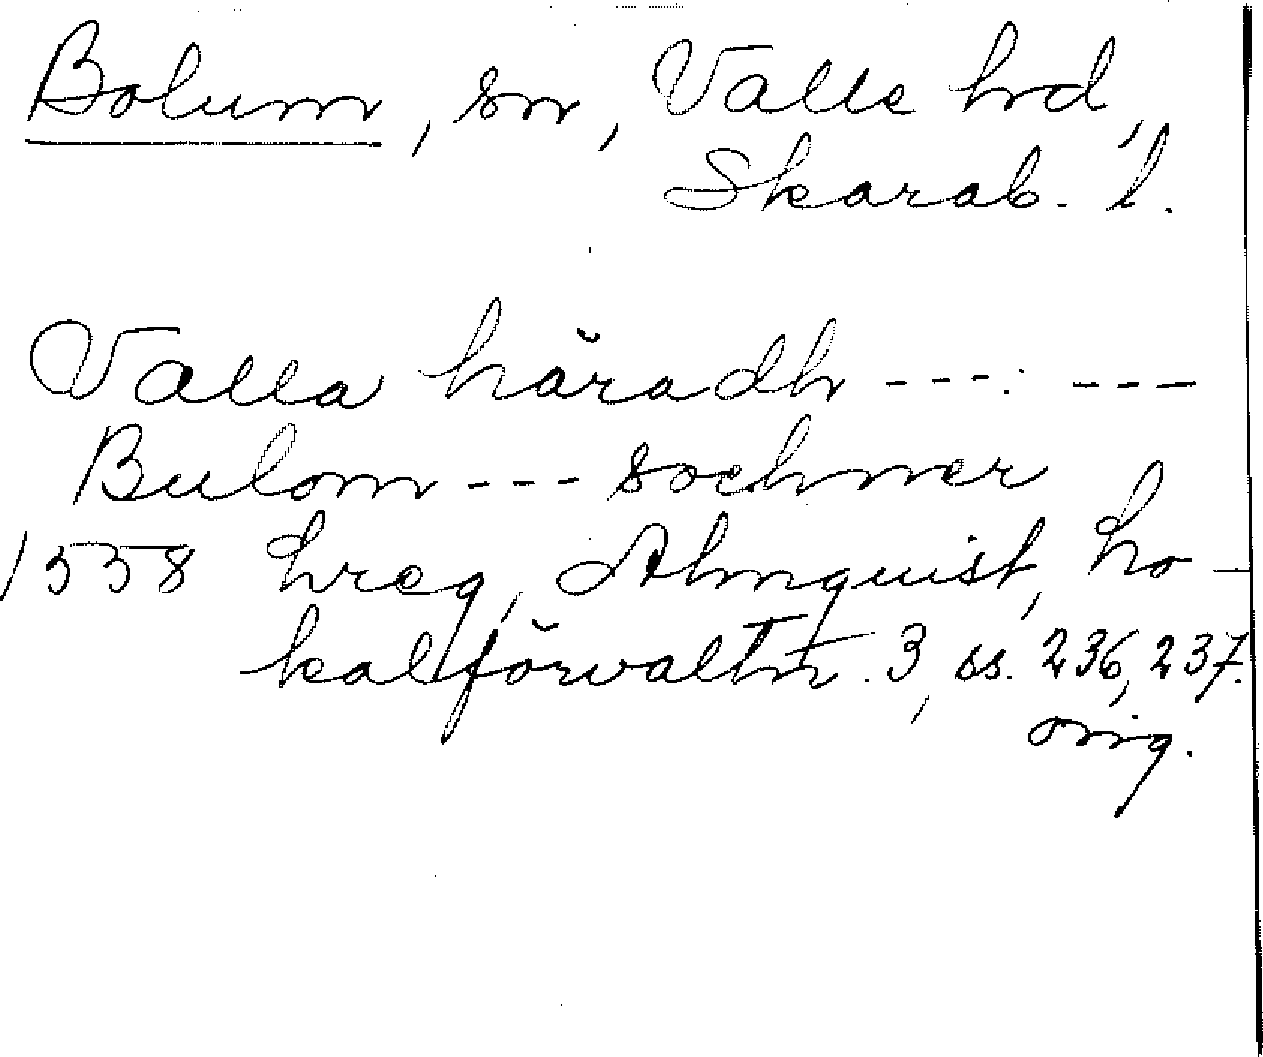 Bolum, sn, Valle hrd,
Skarab. l.
Valla häradh ---: ---
Bulom --- sochner
1558 hreg, Almquist, Lo-
kalförvaltn. 3, ss. 236, 237.
orig.